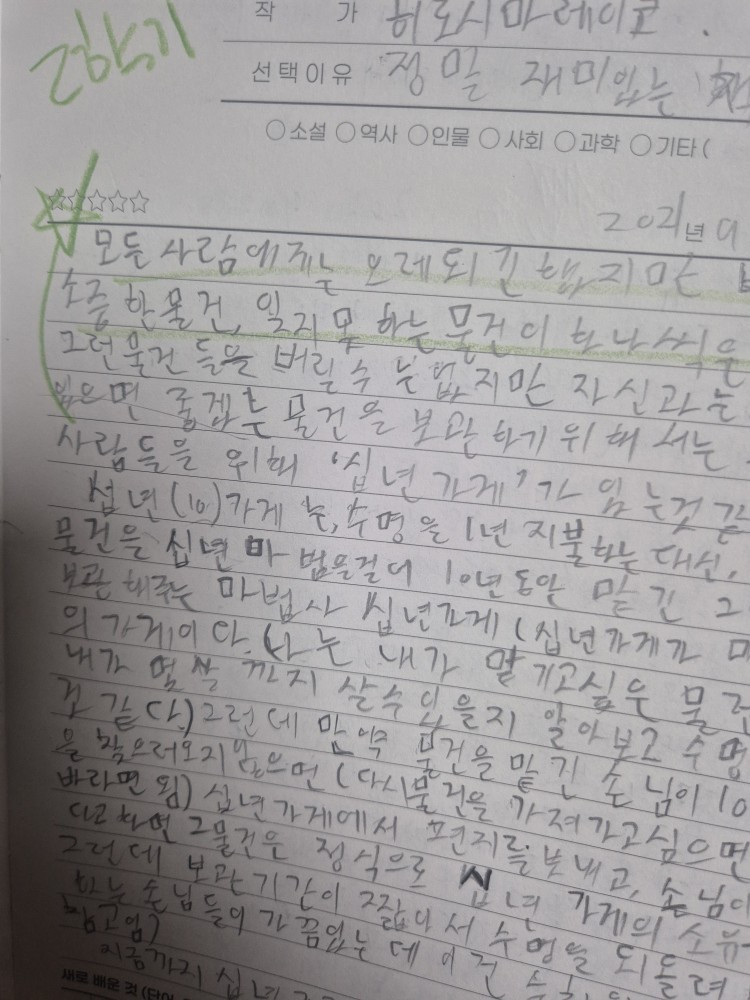 작 가 히로시마 레이코.
선택이유 정말 재미있는
○소설 ○역사 ○인물 ○사회 ○과학 ○기타(
☆☆☆☆☆
년
모든 사람에게는 오레되긴 했지만
소중 한물건, 잊지 못 하는 물건이 하나씩을
그런물건 들을 버릴수 는없지만 자신과는
있으면 물건을 보관 하기 위해 서는
사람들을 위해 '십년 가게'가 있 는것 같
십년(10)가게 는, 수명을 1년 지불하는 대신,
물건을 십년 마 법을걸어 10년동안 맡긴 그
보관 해주는 마법사 십년가게(십년가게가
의가게이다.(나는 내가 맡기고싶은 물건
내가 몇살 까지 살수있을지 알아보고 수명
것 같다.)그런데 만약 물건을 맡긴 손님이 10
을 찾으러오지않으면(다시물건을 가져가고싶으면
바라면 됨) 십년가게에서 편지를보내고, 손님이
다고하면 그물건은 정식으로 십년 가게의 소유
그런데 보관기간이 짧아서 수명을 되돌려
하는 손님들이 가끔있는데 이건
참고임)
지금까지 십년
새로 배운 것(단어